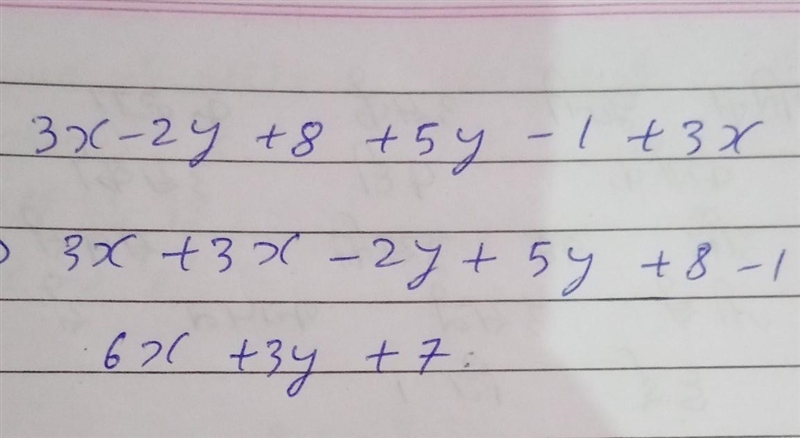 3x - 2y + 8 + 5y - 1 + 3x
3x + 3x - 2y + 5y + 8 - 1
6x + 3y + 7